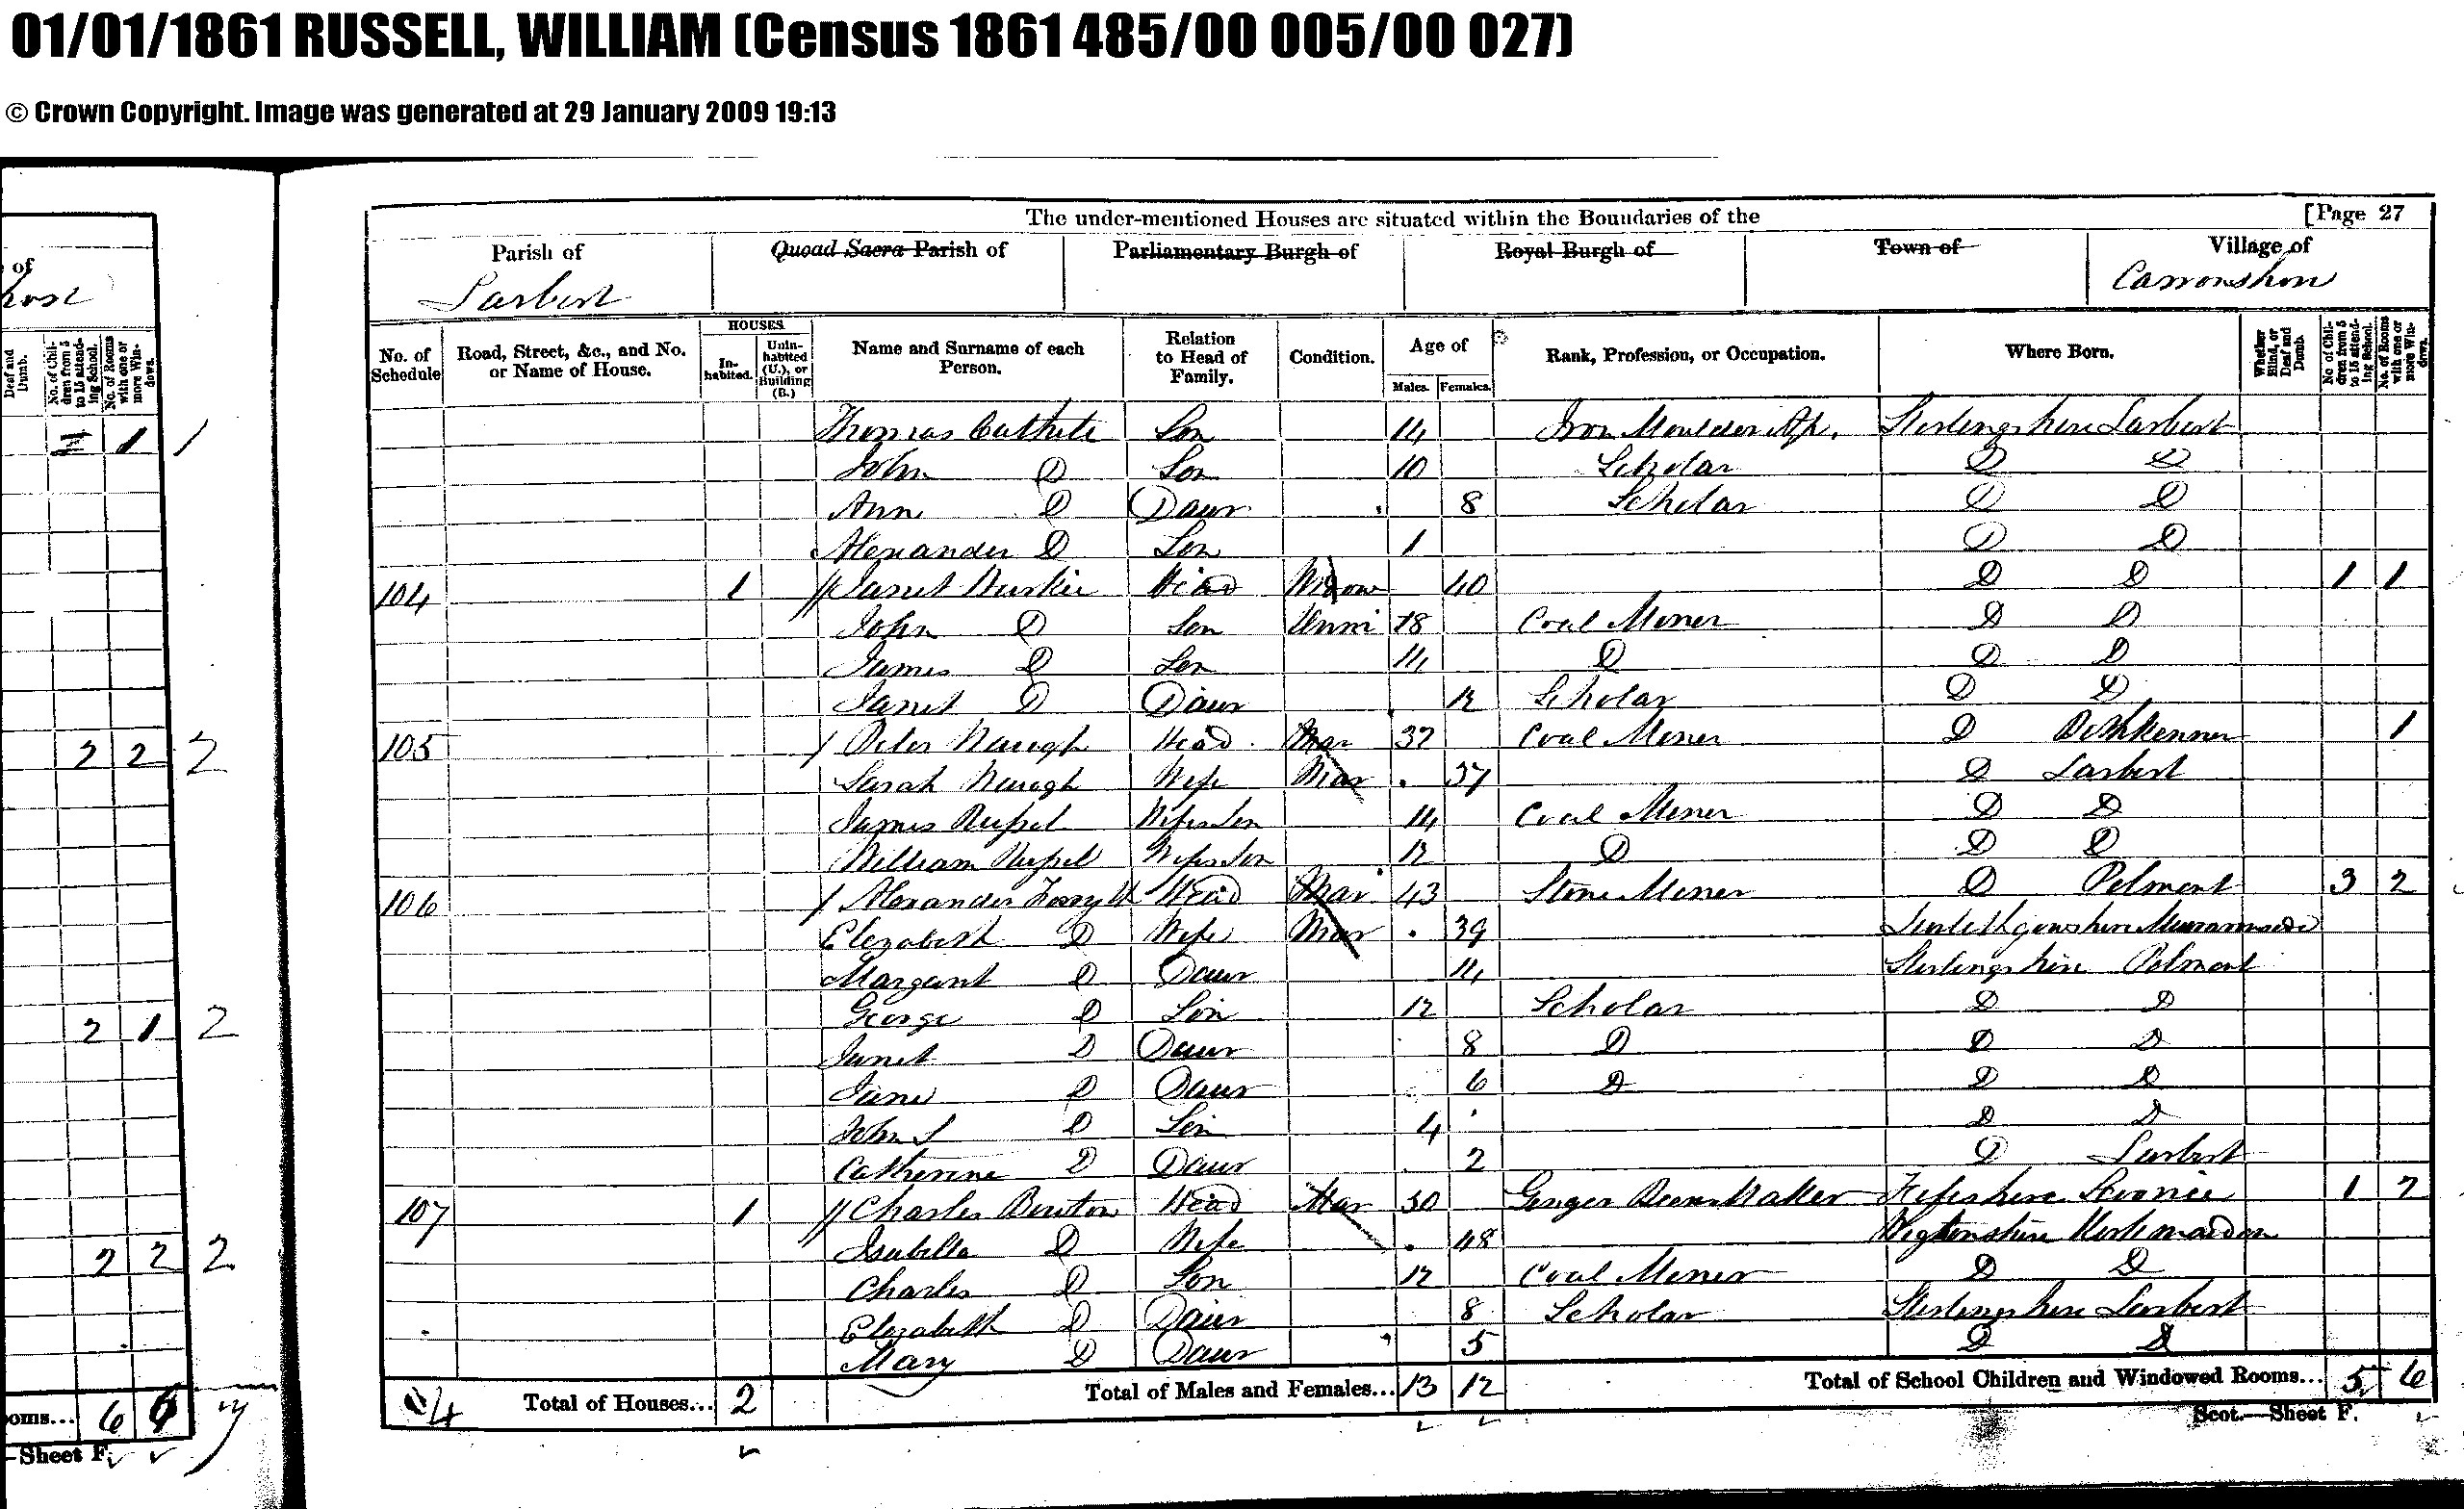 01/01/1861 RUSSELL, WILLIAM (Census 1861 485/00 005/00 027)
© Crown Copyright. Image was generated at 29 January 2009 19:13
The under-mentioned Houses are situated within the Boundaries of the [Page 27
Parish of Quoad Sacra Parish of Parliamentary Burgh of Royal Burgh of Town of Village of
Larbert Carronshore
No. of Schedule Road, Street, &c., and No. or Name of House. HOUSES. Inhabited. Uninhabited (U.), or Building (B.) Name and Surname of each Person. Relation to Head of Family. Condition. Age of Males. Females. Rank, Profession, or Occupation. Where Born. Whether Blind, or Deaf and Dumb. No of Children from 5 to 15 attending School. No. of Rooms with one or more Windows.
Thomas Son 14 Iron Moulder Ap. Stirlingshire Larbert
John D Son 10 Scholar D D
Ann D Daur 8 Scholar D D
Alexander D Son 1 D D
104 1 // Janet Head Widow 40 D D 1 1
John D Son Unm 18 Coal Miner D D
James D Son 14 D D D
Janet D Daur 12 Scholar D D
105 / Peter Waugh Head Mar 32 Coal Miner D Bothkenner 1
Sarah Waugh Wife Mar 37 D Larbert
James Russel Wifes Son 14 Coal Miner D D
William Russel Wifes Son 12 D D D
106 / Alexander Forsyth Head Mar 43 Stone Miner D Polmont 3 2
Elizabeth D Wife Mar 39 Linlithgowshire Muiravonside
Margaret D Daur 14 Stirlingshire Polmont
George D Son 12 Scholar D D
Janet D Daur 8 D D D
Jane D Daur 6 D D D
John S D Son 4 D D
Catherine D Daur 2 D Larbert
107 1 // Charles Head Mar 50 Ginger Beer Maker Fifeshire Scoonie 1 2
Isabella D Wife 48 Wigtonshire Kirkmaiden
Charles D Son 12 Coal Miner D D
Elizabeth D Daur 8 Scholar Stirlingshire Larbert
Mary D Daur 5 D D
4 Total of Houses... 2 Total of Males and Females... 13 12 Total of School Children and Windowed Rooms... 5 6
Scot.—Sheet F.
of
Deaf and Dumb. No. of Children from 5 to 15 attending School. No. of Rooms with one or more Windows.
1 1
2 2 2
2 1 2
2 2 2
ooms... 6
—Sheet F.